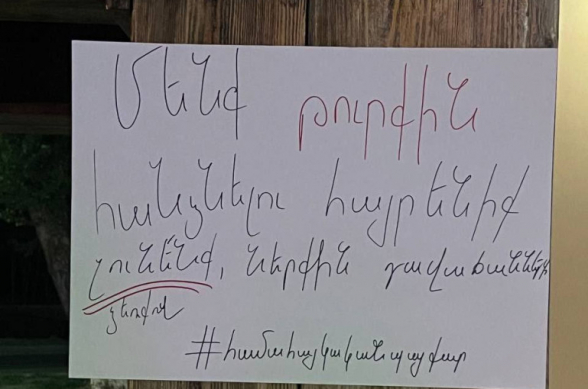 Մենք թուրքին
հանձնելու հայրենիք
չունենք, ներքին դավաճաններ
ձեռքով
#համահայկականպայքար